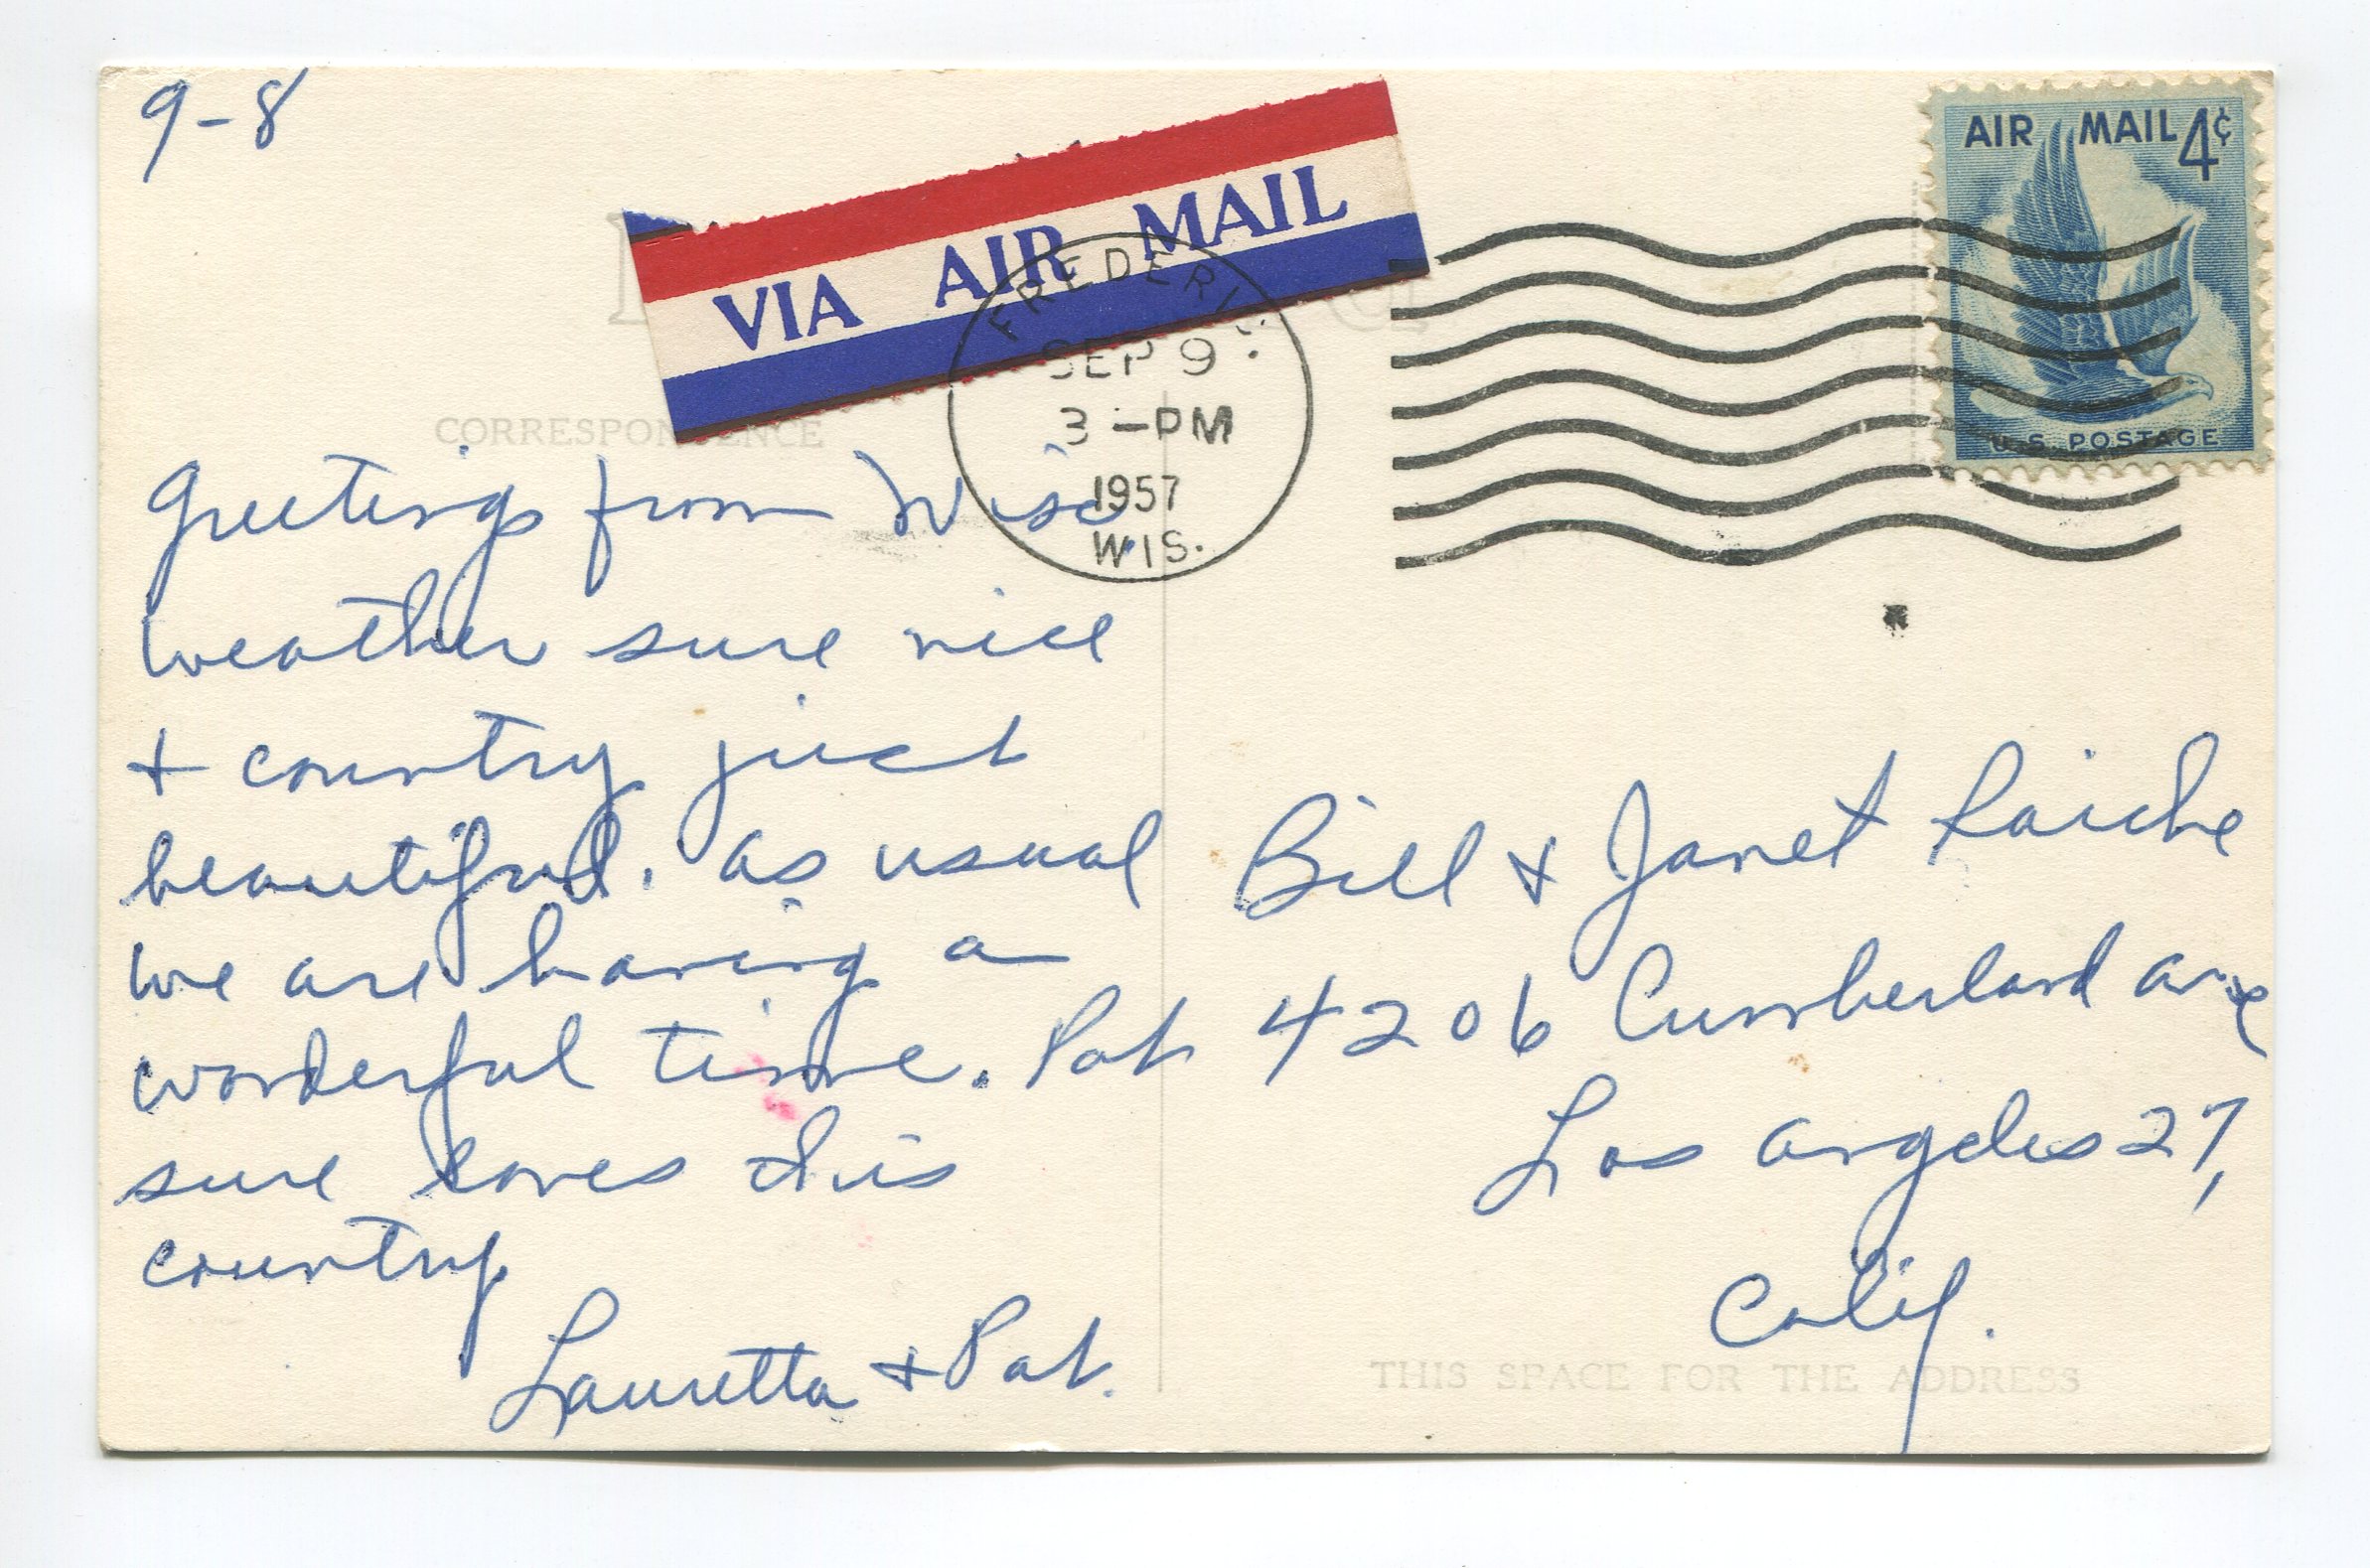 9-8
VIA AIR MAIL
AIR MAIL 4¢
U.S. POSTAGE
FREDERIC
SEP 9
3-PM
1957
WIS.
CORRESPONDENCE
Greetings from Wisc.
Weather sure nice
+ country just
beautiful. as usual
we are having a
wonderful time. Pat
sure loves this
country
Lauretta + Pat.
Bill + Janet Raiche
4206 Cumberland ave
Los angeles 27,
Calif.
THIS SPACE FOR THE ADDRESS